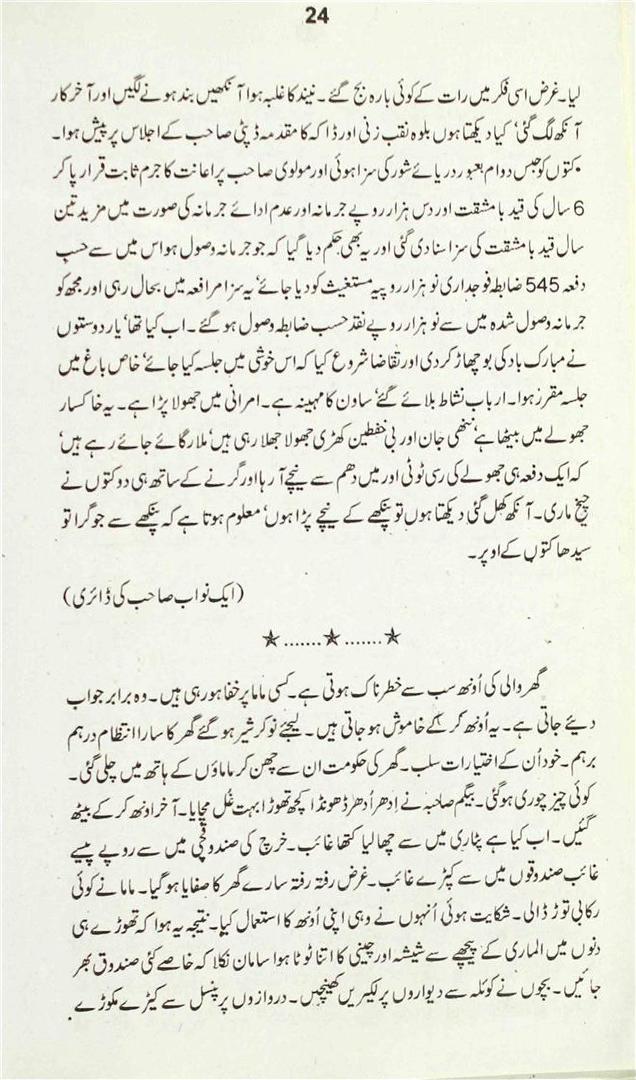 24
لیا۔ غرض اسی فکر میں رات کے کوئی بارہ بج گئے۔ نیند کا غلبہ ہوا آنکھیں بند ہونے لگیں اور آخر کار
آنکھ لگ گئی‘ کیا دیکھتا ہوں بلوہ نقب زنی اور ڈاکہ کا مقدمہ ڈپٹی صاحب کے اجلاس پر پیش ہوا۔
کتوں کو حبس دوام بعبور دریائے شور کی سزا ہوئی اور مولوی صاحب پر اعانت کا جرم ثابت قرار پا کر
6 سال کی قید با مشقت اور دس ہزار روپے جرمانہ اور عدم ادائے جرمانہ کی صورت میں مزید تین
سال قید با مشقت کی سزا سنا دی گئی اور یہ بھی حکم دیا گیا کہ جو جرمانہ وصول ہو اس میں سے حسب
دفعہ 545 ضابطہ فوجداری نو ہزار روپیہ مستغیث کو دیا جائے‘ یہ سزا مرافعہ میں بحال رہی اور مجھ کو
جرمانہ وصول شدہ میں سے نو ہزار روپے نقد حسب ضابطہ وصول ہو گئے۔ اب کیا تھا‘ یار دوستوں
نے مبارک باد کی بوچھاڑ کر دی اور تقاضا شروع کیا کہ اس خوشی میں جلسہ کیا جائے‘ خاص باغ میں
جلسہ مقرر ہوا۔ ارباب نشاط بلائے گئے‘ ساون کا مہینہ ہے۔ امرائی میں جھولا پڑا ہے۔ یہ خاکسار
جھولے میں بیٹھا ہے‘ ننھی جان اور بی خفطین کھڑی جھولا جھلا رہی ہیں‘ ملار گائے جا رہے ہیں‘
کہ ایک دفعہ ہی جھولے کی رسی ٹوٹی اور میں دھم سے نیچے آ رہا اور گرنے کے ساتھ ہی دو کتوں نے
چیخ ماری۔ آنکھ کھل گئی دیکھتا ہوں تو پنکھے کے نیچے پڑا ہوں‘ معلوم ہوتا ہے کہ پنکھے سے جو گرا تو
سیدھا کتوں کے اوپر۔
(ایک نواب صاحب کی ڈائری)
★.......★.......★
گھر والی کی اُونھ سب سے خطرناک ہوتی ہے۔ کسی ماما پر خفا ہو رہی ہیں۔ وہ برابر جواب
دیئے جاتی ہے۔ یہ اُونھ کر کے خاموش ہو جاتی ہیں۔ لیجئے نوکر شیر ہو گئے گھر کا سارا انتظام درہم
برہم۔ خود اُن کے اختیارات سلب۔ گھر کی حکومت ان سے چھن کر ماماؤں کے ہاتھ میں چلی گئی۔
کوئی چیز چوری ہو گئی۔ بیگم صاحبہ نے اِدھر اُدھر ڈھونڈا کچھ تھوڑا بہت غُل مچایا۔ آخر اونھ کر کے بیٹھ
گئیں۔ اب کیا ہے پٹاری میں سے چھالیا کتھا غائب۔ خرچ کی صندوقچی میں سے روپے پیسے
غائب صندوقوں میں سے کپڑے غائب۔ غرض رفتہ رفتہ سارے گھر کا صفایا ہو گیا۔ ماما نے کوئی
رکابی توڑ ڈالی۔ شکایت ہوئی اُنہوں نے وہی اپنی اُونھ کا استعمال کیا۔ نتیجہ یہ ہوا کہ تھوڑے ہی
دنوں میں الماری کے پیچھے سے شیشہ اور چینی کا اتنا ٹوٹا ہوا سامان نکلا کہ خاصے کئی صندوق بھر
جائیں۔ بچوں نے کوئلہ سے دیواروں پر لکیریں کھینچیں۔ دروازوں پر پنسل سے کیڑے مکوڑے